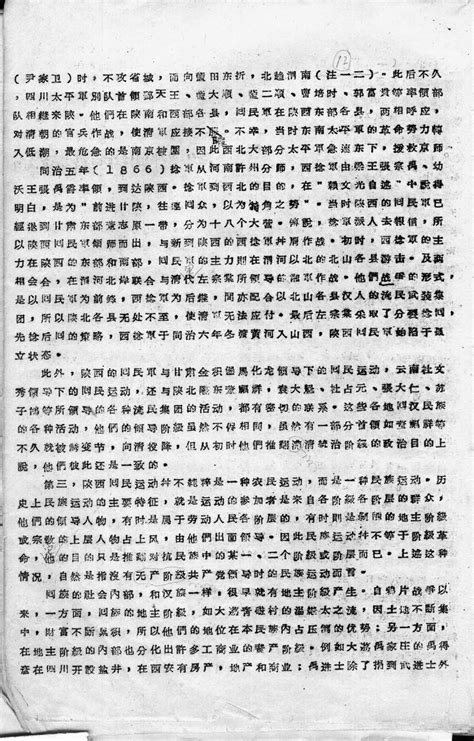 (12)
(尹家卫)时,不攻省城,而向蓝田东折,北趋渭南(注一二)。此后不久
,四川太平军别队首领郭天王、蓝大顺、蓝二顺、曹培时、郭富贵等率领部
队相继来陕。他们在陕南和西部各县,回民军在陕西东部各县,两相呼应,
对清朝的官兵作战,使清军应接不。不幸,当时东南太平军的革命势力转
入低潮,最危急的是南京被围,因此西北大部分太平军急速东下,援救京师
同治五年(1866)捻军从河南许州分师,西捻军由梁王张宗禹、幼
沃王张禹爵率领,到达陕西。捻军到西北的目的,在"赖文光自述"中说得
明白,是为"前进甘陕,往连回众,以为犄角之势"。当时陕西的回民军已
经退到甘肃东部董志原一带,分为十八个大营。传说,捻军派人去报信,所
以陕西回民军领师而出,与新到陕西的西捻军并肩作战。初时,西捻军的主
力在陕西的东部和南部,回民军的主力则在渭河以北的北山各县,及两
相会合,在渭河北岸联合与清代左宗棠所领导的湘军作战。他们战的形式,
是以回民军为前锋,西捻军为后继,间亦配合以北山各县汉人的流民武装集
团,所以陕北各地无处不乱,使清军无法应付。最后左宗棠采取了分裂捻回
先捻后回的策略,西捻军于同治六年冬黄河入山西,陕西回民军始陷于孤
立状态。
此外,陕西的回民军与甘肃金积堡马化龙领导下的回民运动,云南杜文
秀领导下的回民运动,还与陕北陇东董麒麟,袁大魁、社占元、张大仁、苏
子鸿等所领导的各种流民集团的活动,都有密切的联系。这些各地回汉民族
的各种活动,他们的领导人不一定都是革命的,虽然有一部分首领如董麒麟等
不久就被变节,向清投降,但从初时他们推翻清朝封建统治的政治目的上
说,他们彼此还是一致的。
第三,陕西的回民运动并不纯粹是一种农民运动,而是一种民族运动。历
史上民族运动的主要特征,就是运动的参加者是来自各阶级各阶层的群众,
他们的领导人物,有时是属于劳动人民各阶层的,有时则是剥削的地主阶级
或宗教的上层人物占上风,由于他们出身的阶级成份不同,并不等于阶级革
命,他的目的只是推翻对抗民族中的某一、二个阶级或阶层而已。上述这种
情况,自然是指没有无产阶级共产党领导时的民族运动而言。
回族的社会内部,和汉族一样,很早就有地主阶级产生。自鸦片战争以
来,一方面,回族的地主阶级,如大荔青磋村的温太之流,因土地不断集
中,财富不断累积,所以他们的地位在本民族内占压迫的优势;另一方面,在
在地主阶级的内部也分化出许多工商业的资产阶级。例如大荔禹家庄的禹得
在四川开设盐井,在西安有房产,地产和商业;禹进士除了捐到武进士外